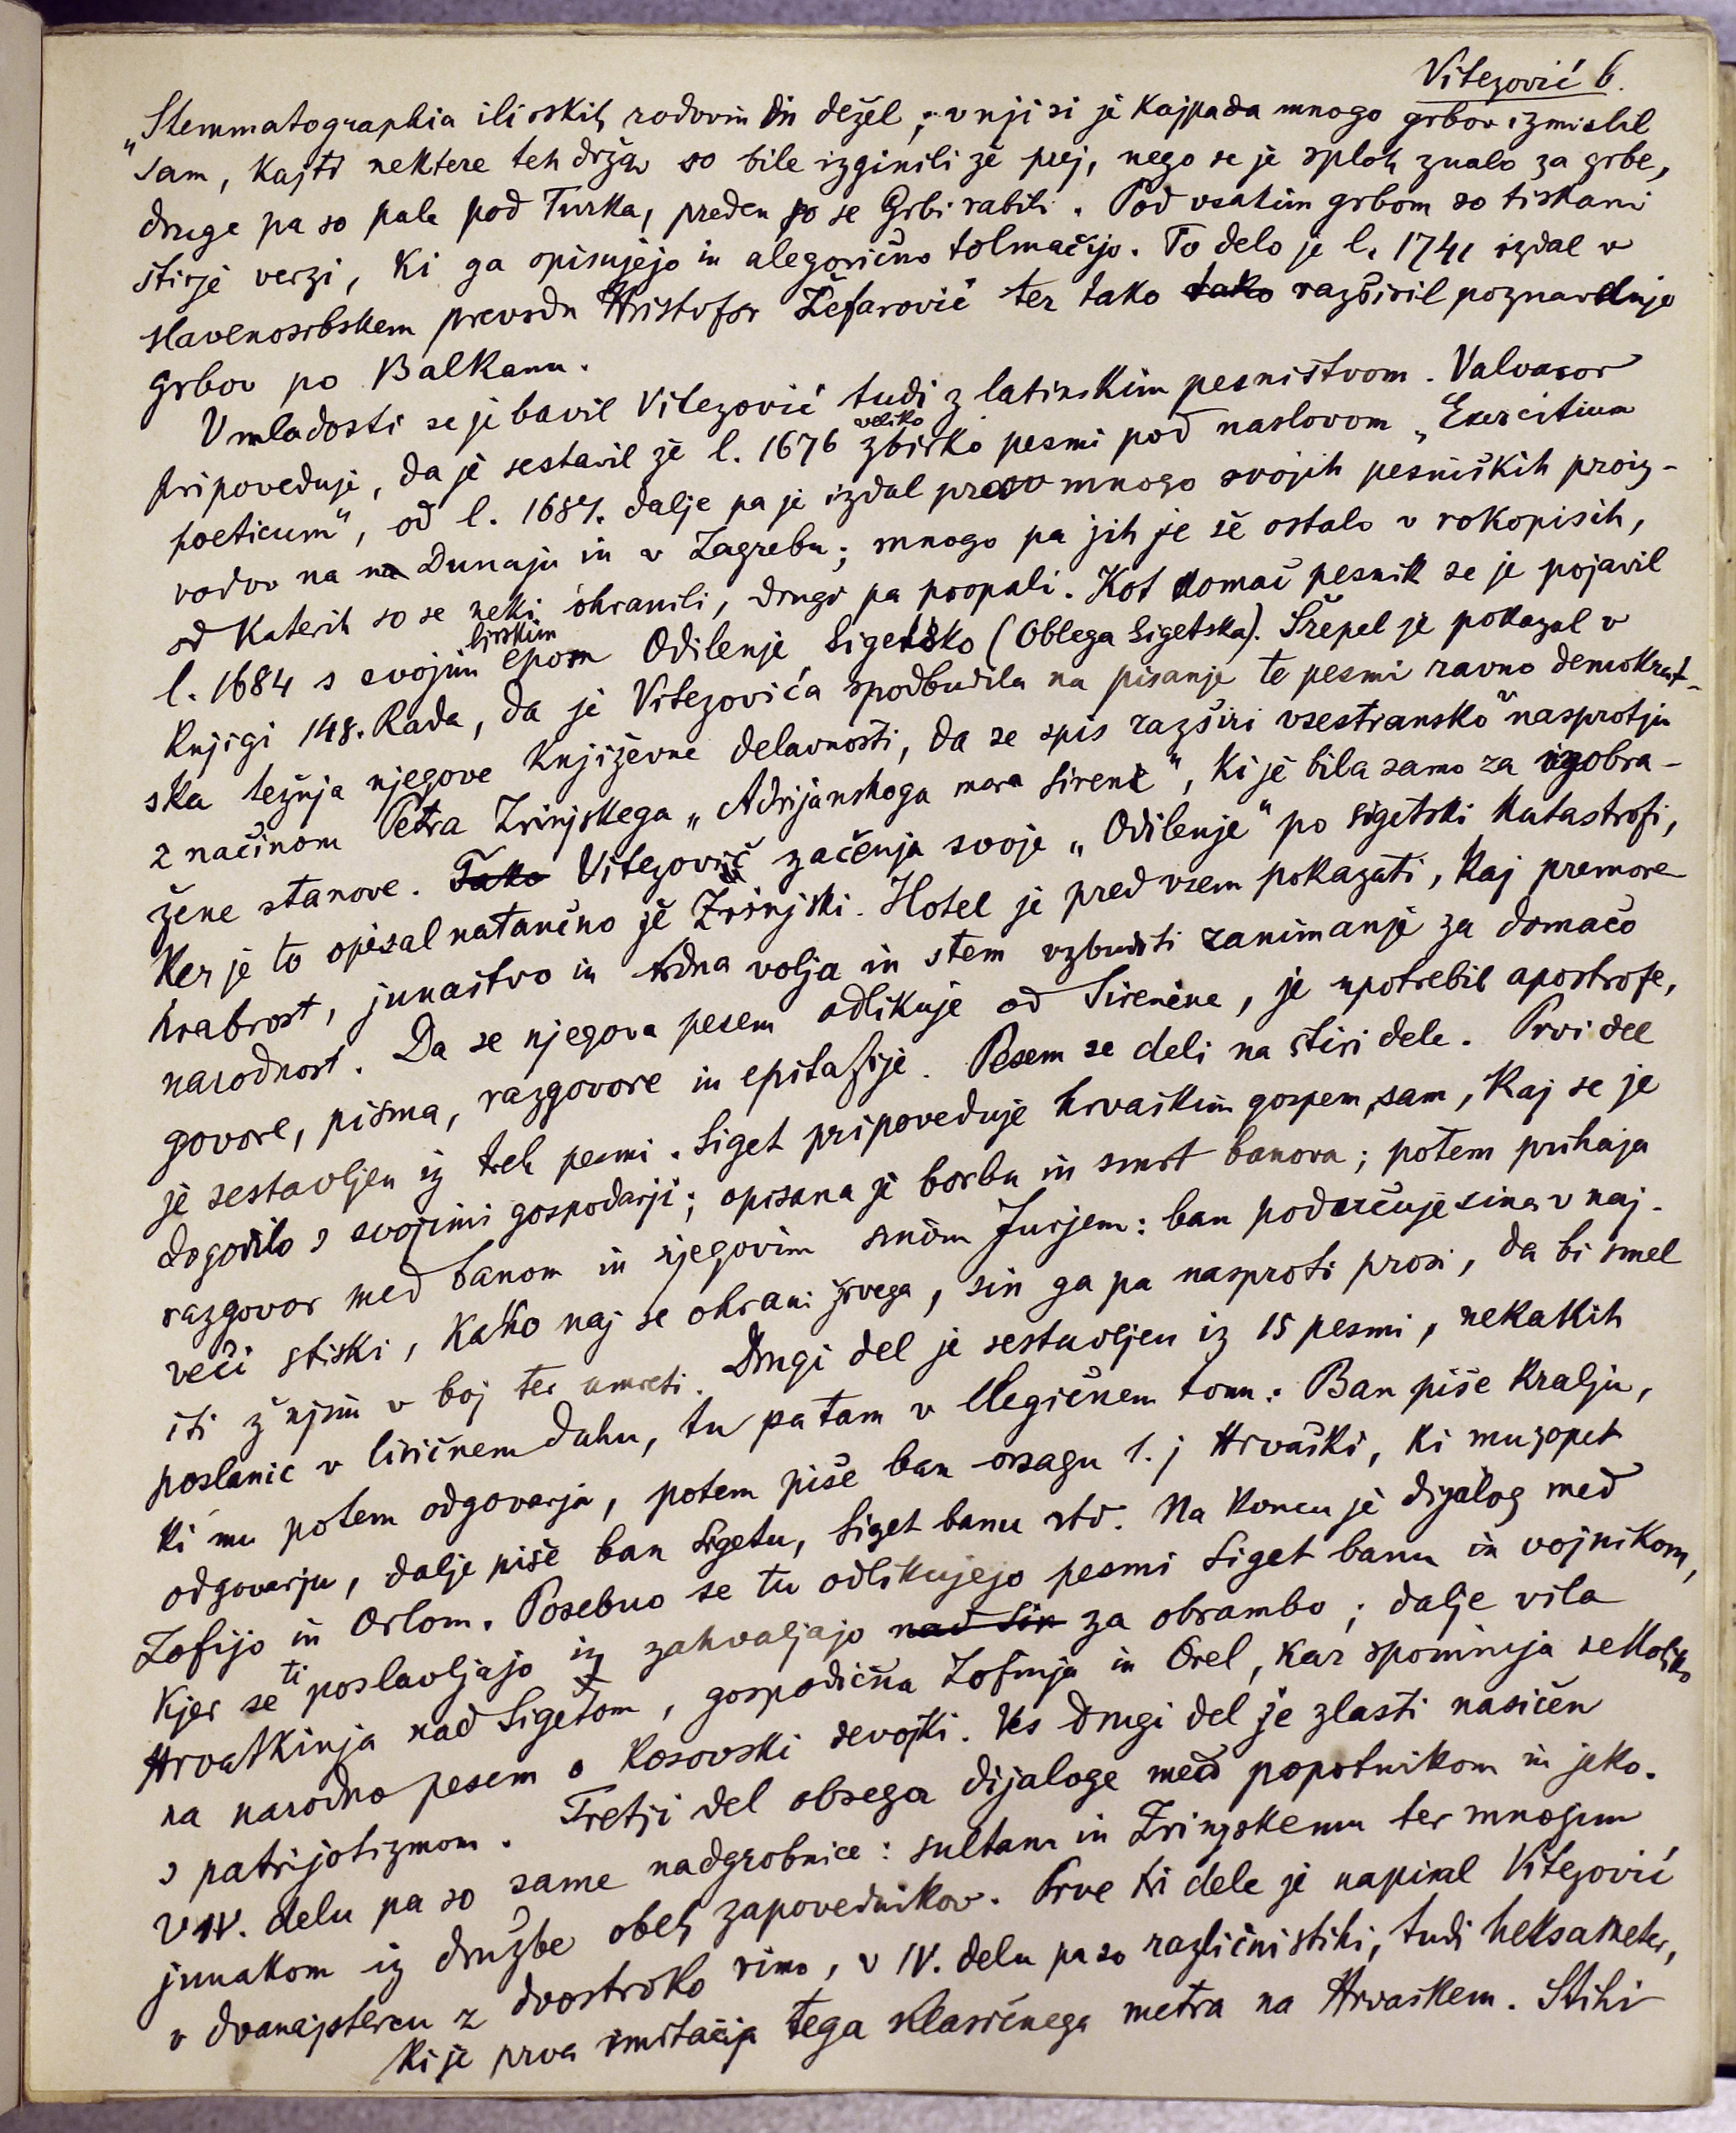 Vitezović 6.
„Stemmatographia ilirskih rodovin in dežel; v nji si je kajpada mnogo grbov izmislil
sam, kajti nektere teh držav so bile izginili že prej, nego se je sploh znalo za grbe,
druge pa so pale pod Turka, preden so se Grbi rabili. Pod vsakim grbom so tiskani
štirje verzi, ki ga opisujejo in alegorično tolmačijo. To delo je l. 1741 izdal v
slavenosrbskem prevodu Hristofor Žefarović ter tako tako razširil poznavanje
grbov po Balkanu.
V mladosti se je bavil Vitezović tudi z latinskim pesništvom. Valvasor
pripoveduje, da je sestavil že l. 1676 veliko zbirko pesmi pod naslovom „Exercitium
poeticum“, od l. 1684. dalje pa je izdal prav mnogo svojih pesniških proiz-
vodov na na Dunaju in v Zagrebu; mnogo pa jih je še ostalo v rokopisih,
od katerih so se neki ohranili, drugi pa propali. Kot domač pesnik se je pojavil
l. 1684 s svojim lirskim epom Odilenje Sigetsko (Oblega Sigetska). Šrepel je pokazal v
knjigi 148. Rada, da je Vitezovića spodbudila na pisanje te pesmi ravno demokrat-
ska težnja njegove književne delavnosti, da se spis razširi vsestransko v nasprotju
z načinom Petra Zrinjskega „Adrijanskoga mora Sirene“, ki je bila samo za izobra-
žene stanove. Tako Vitezović začenja svoje „Odilenje“ po sigetski katastrofi,
ker je to opisal natančno že Zrinjski. Hotel je pred vsem pokazati, kaj premore
hrabrost, junaštvo in trdna volja in s tem vzbuditi zanimanje za domačo
narodnost. Da se njegova pesem odlikuje od Sirenine, je upotrebil apostrofe,
govore, pisma, razgovore in epitafije. Pesem se deli na štiri dele. Prvi del
je sestavljen iz treh pesmi. Siget pripoveduje hrvaškim gospem, sam, kaj se je
dogodilo s svojimi gospodarji; opisana je borba in smrt banova; potem prihaja
razgovor med banom in njegovim sinom Jurjem: ban podučuje sina v naj-
veči stiski, kako naj se ohrani živega, sin ga pa nasproti prosi, da bi smel
iti ž njim v boj ter umreti. Drugi del je sestavljen iz 15 pesmi, nekakih
poslanic v liričnem duhu, tu pa tam v elegičnem tonu: Ban piše kralju,
ki mu potem odgovarja, potem piše ban orsagu t. j Hrvaški, ki mu zopet
odgovarja, dalje piše ban Sigetu, Siget banu itd. Na koncu je dijalog med
Zofijo in Orlom. Posebno se tu odlikujejo pesmi Siget banu in vojnikom,
kjer se ti poslavljajo in zahvaljajo nad Sik za obrambo; dalje vila
Hrvatkinja nad Sigetom, gospodična Zofija in Orel, kar spominja nekoliko
na narodno pesem o Kosovski devojki. Ves drugi del je zlasti nasičen
s patrijotizmom. Tretji del obsega dijaloge med popotnikom in jeko.
V IV. delu pa so same nadgrobnice: sultanu in Zrinjskemu ter mnogim
junakom iz družbe obeh zapovednikov. Prve tri dele je napisal Vitezović
v dvanajstercu z dvostroko rimo, v IV. delu pa so različni stihi, tudi heksameter,
ki je prva imitacija tega klasičnega metra na Hrvaškem. Stihi